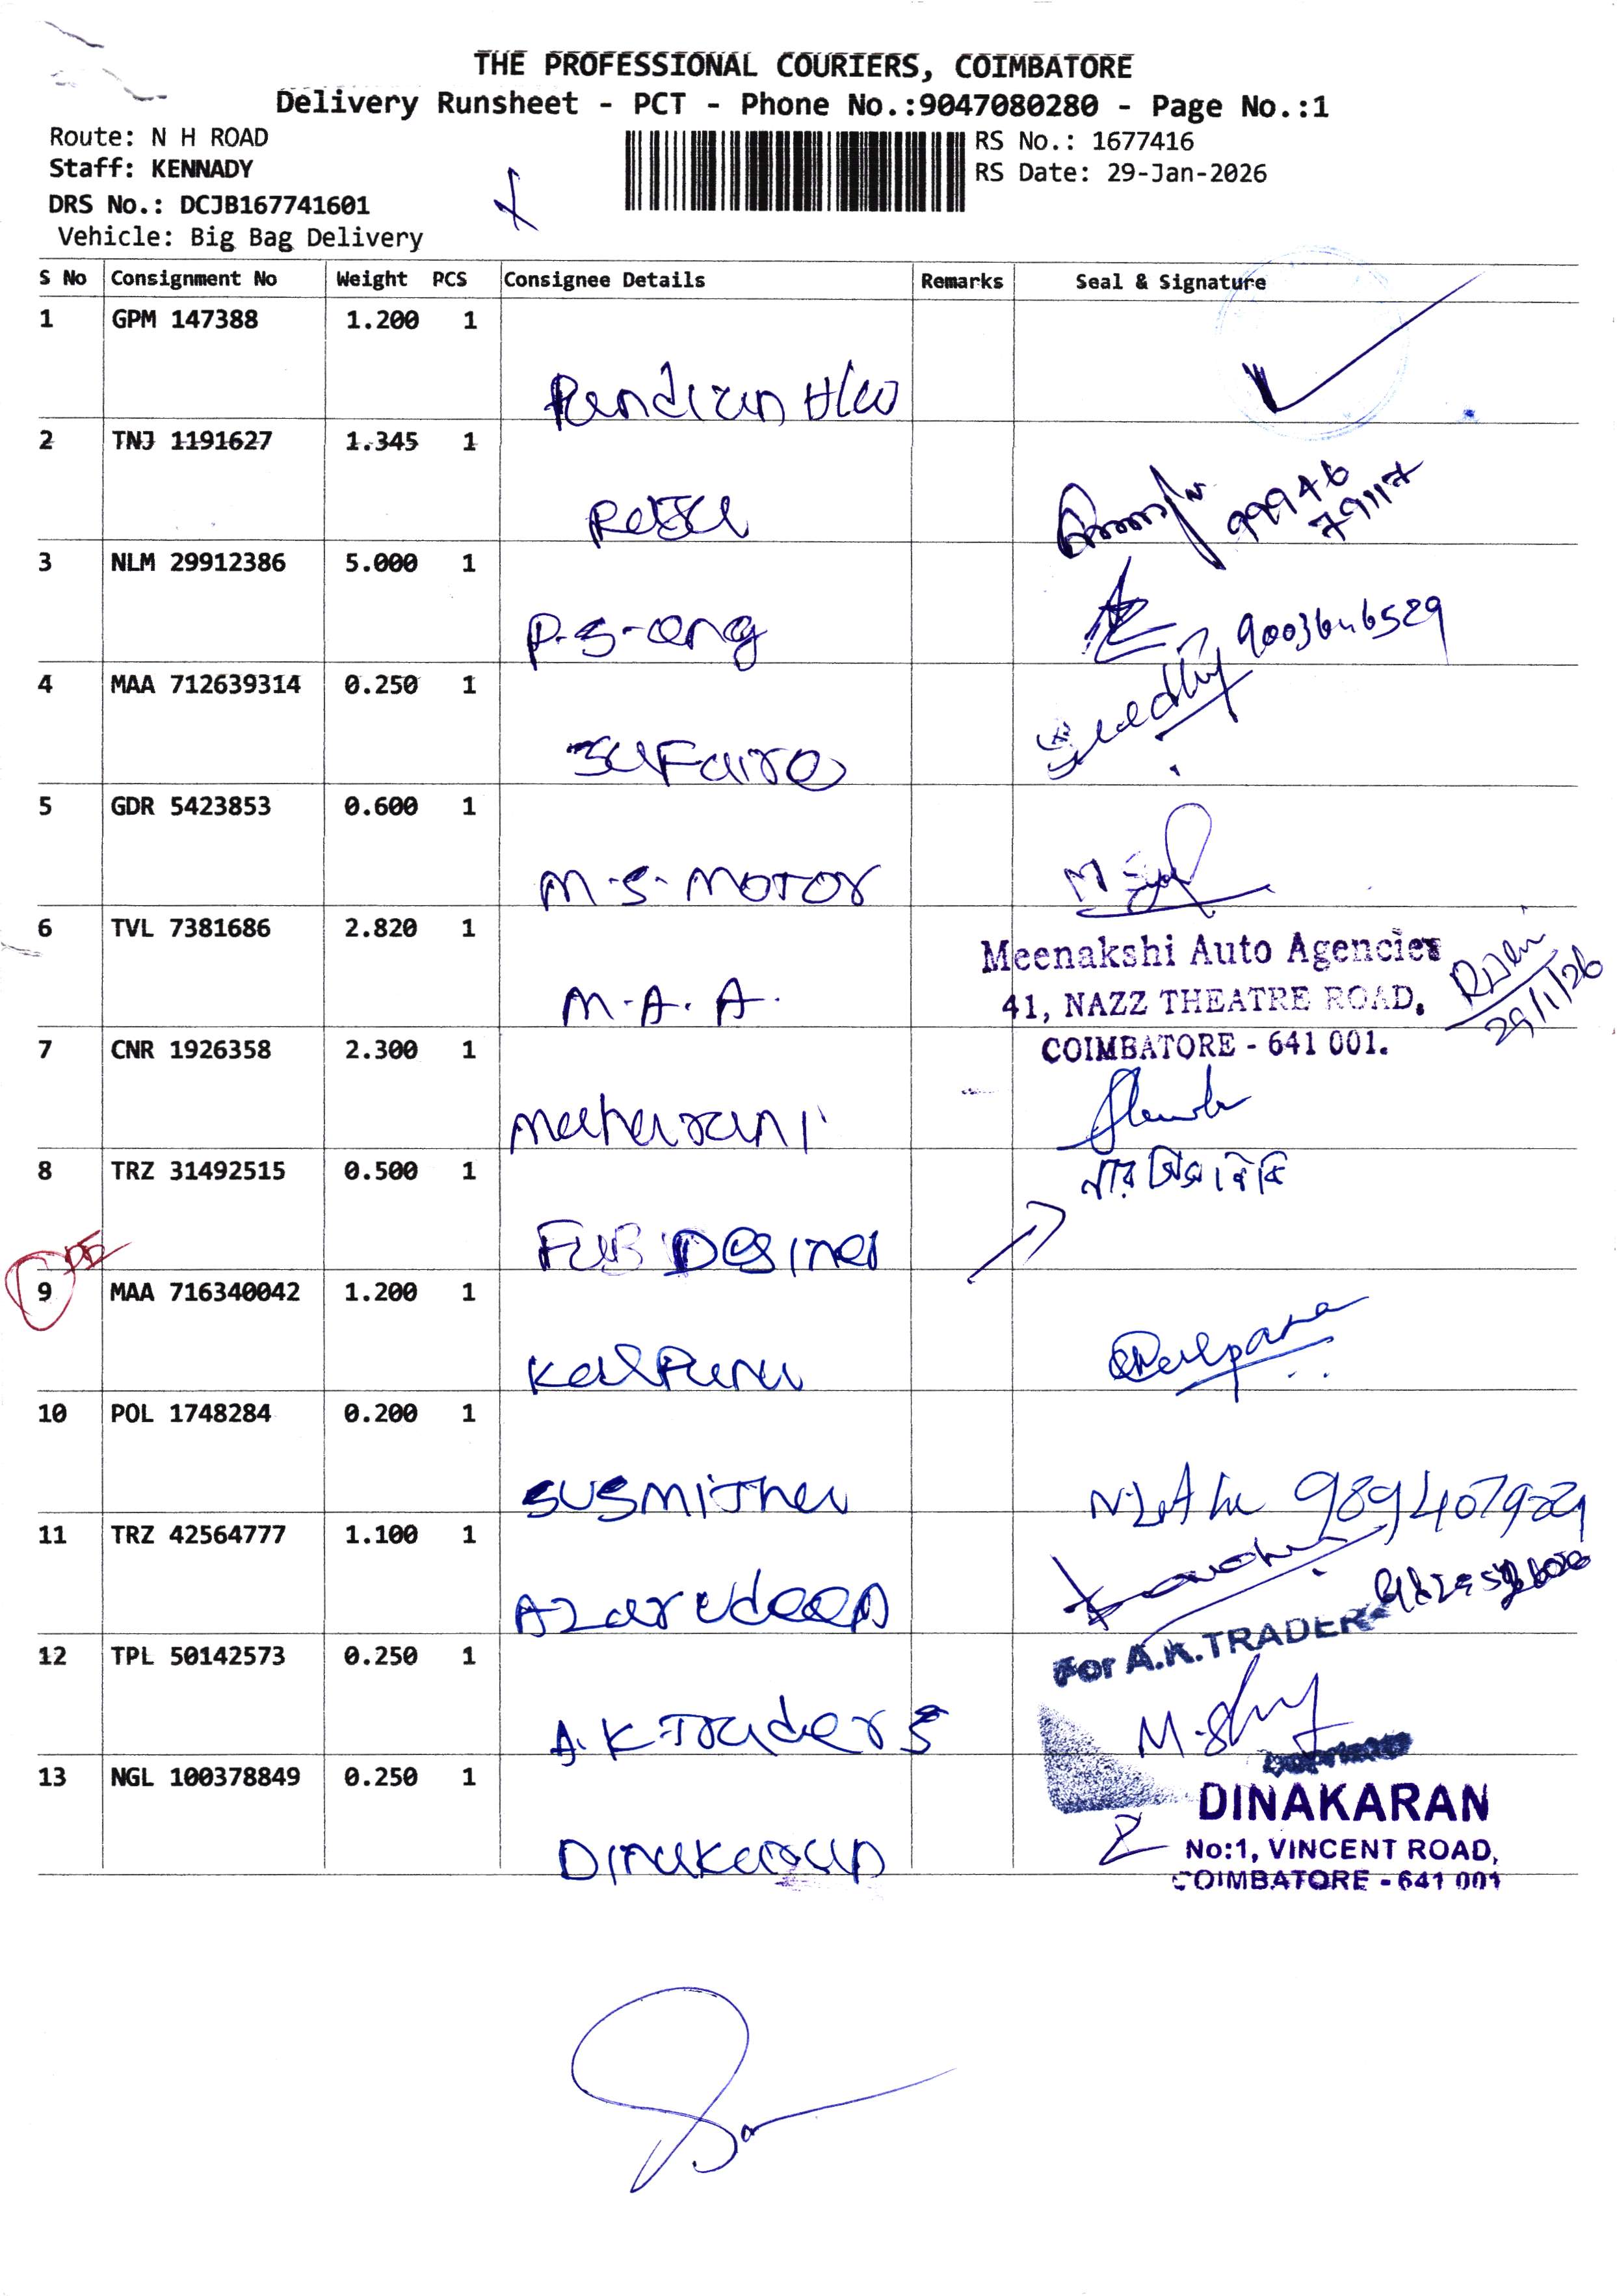 THE PROFESSIONAL COURIERS, COIMBATORE
Delivery Runsheet - PCT - Phone No.:9047080280 - Page No.:1
Route: N H ROAD
RS No.: 1677416
Staff: KENNADY
RS Date: 29-Jan-2026
DRS No.: DCJB167741601
Vehicle: Big Bag Delivery
S No Consignment No Weight PCS Consignee Details Remarks Seal & Signature
1 GPM 147388 1.200 1
Pandian H/W
2 TNJ 1191627 1.345 1
99946
79117
3 NLM 29912386 5.000 1
P.S-eng
4 MAA 712639314 0.250 1
5 GDR 5423853 0.600 1
M.S. MOTOR
6 TVL 7381686 2.820 1
M.A.A.
Meenakshi Auto Agencies
41, NAZZ THEATRE ROAD,
COIMBATORE - 641 001.
29/1/26
7 CNR 1926358 2.300 1
Maharani
8 TRZ 31492515 0.500 1
9 MAA 716340042 1.200 1
Kalpana
Kalpana
10 POL 1748284 0.200 1
SUSMITha
11 TRZ 42564777 1.100 1
Azarudeen
12 TPL 50142573 0.250 1
A.K Traders
For A.K.TRADERS
13 NGL 100378849 0.250 1
Dinakaran
DINAKARAN
No:1, VINCENT ROAD,
COIMBATORE - 641 001